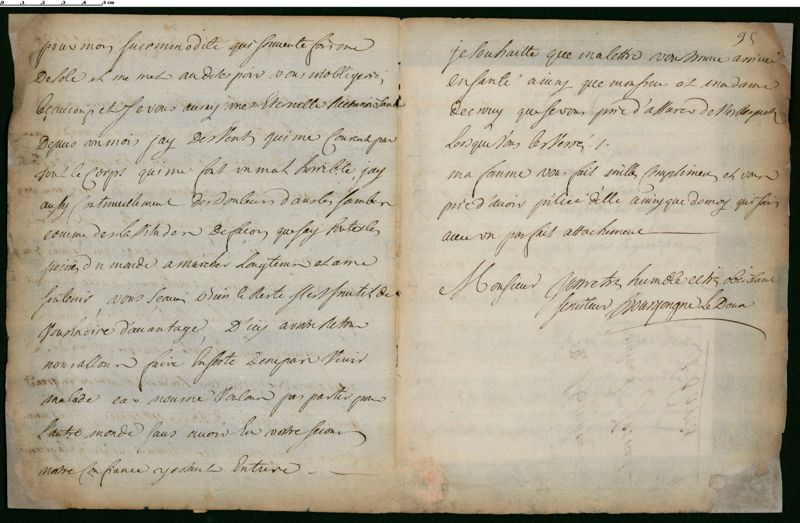 pour mon incommodité qui souvente fois me
Desole et me met au desespoir, vous mobligerés
beaucoup, et Je vous auray une Eternelle Reconnoissance
Depuis un mois jay Des Vents qui me Courent par
tout le Corps qui me font un mal horrible, jay
aussy Continuellement des douleurs dans les Jambes
comme des lassitudes De façon que jay toutes les
peines du monde a marcher longtems et a me
soutenir, vous scavés bien le Reste il est Inutil de
Vous Dire davantage, D'icy a votre Retour
nous allons faire En sorte De ne pas Venir
malade car nous ne Voulons pas partir pour
l'autre monde sans avoir Eu votre secours
notre Confiance y estant Entiere . —
95
je souhaitte que ma lettre vous trouve arrivé
en santé ainsy que monsieur et madame
que je vous prie d'assurer de mes Respects
Lorsque Vous les Verrés ; .
ma famme vous fait mille Complimens et vous
prie d'avoir pitiée d'elle ainsy que de moy qui suis
avec un parfait attachement
Monsieur Votre tres humble et tres obeissant
serviteur Bourgongne Le Doux